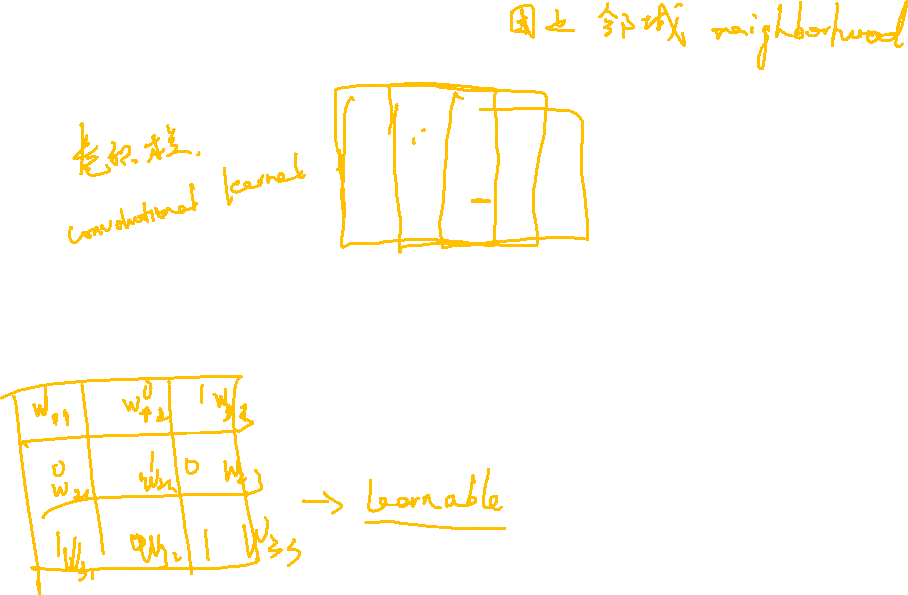 邻域 neighborhood
卷积核.
convolutional kernel
w11 0 w12 1 w33
0 w21 1 w22 0 w23
1 w31 0 w32 1 w33
→ Learnable